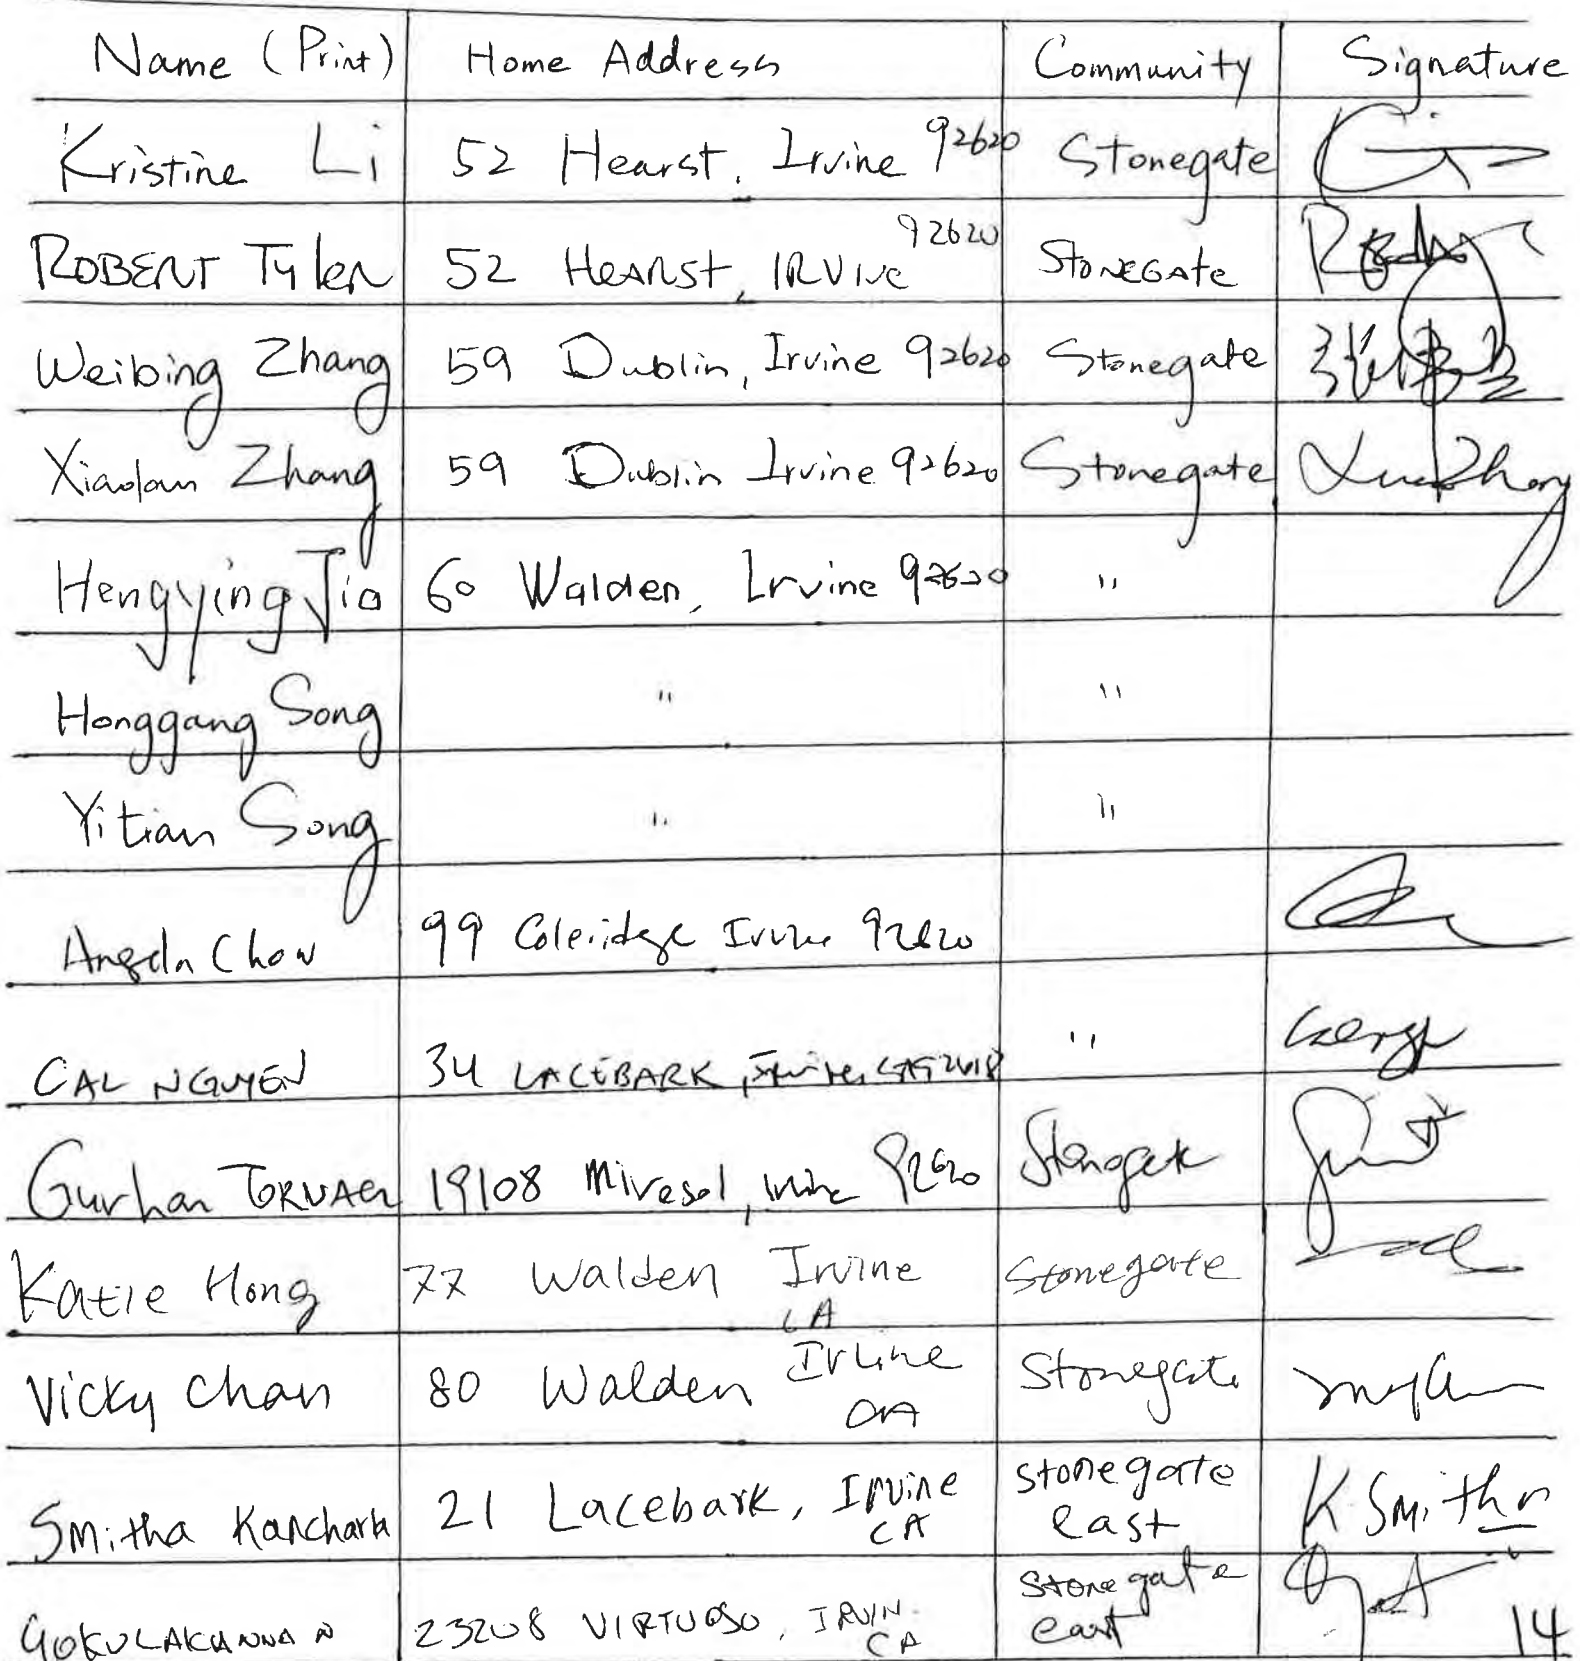 Name (Print) Home Address Community Signature
Kristine Li 52 Hearst, Irvine 92620 Stonegate
ROBERT Tyler 52 HEARST, IRVINE 92620 STONEGATE
Weibing Zhang 59 Dublin, Irvine 92620 Stonegate
Xiaolan Zhang 59 Dublin Irvine 92620 Stonegate
Hengying Jia 60 Walden, Irvine 92620 "
Honggang Song " "
Yitian Song " "
Angela Chow 99 Coleridge Irvine 92620
CAL NGUYEN 34 LACEBARK, Irvine, CA 92618 "
Gurhan 19108 Mirasol, Irvine 92620 Stonegate
Katie Hong 77 Walden Irvine CA Stonegate
Vicky Chan 80 Walden Irvine CA Stonegate
Smitha Kancharla 21 Lacebark, Irvine CA Stonegate east K Smitha
GOKULAKANNAN 23208 VIRTUOSO, IRVIN CA Stonegate east
14